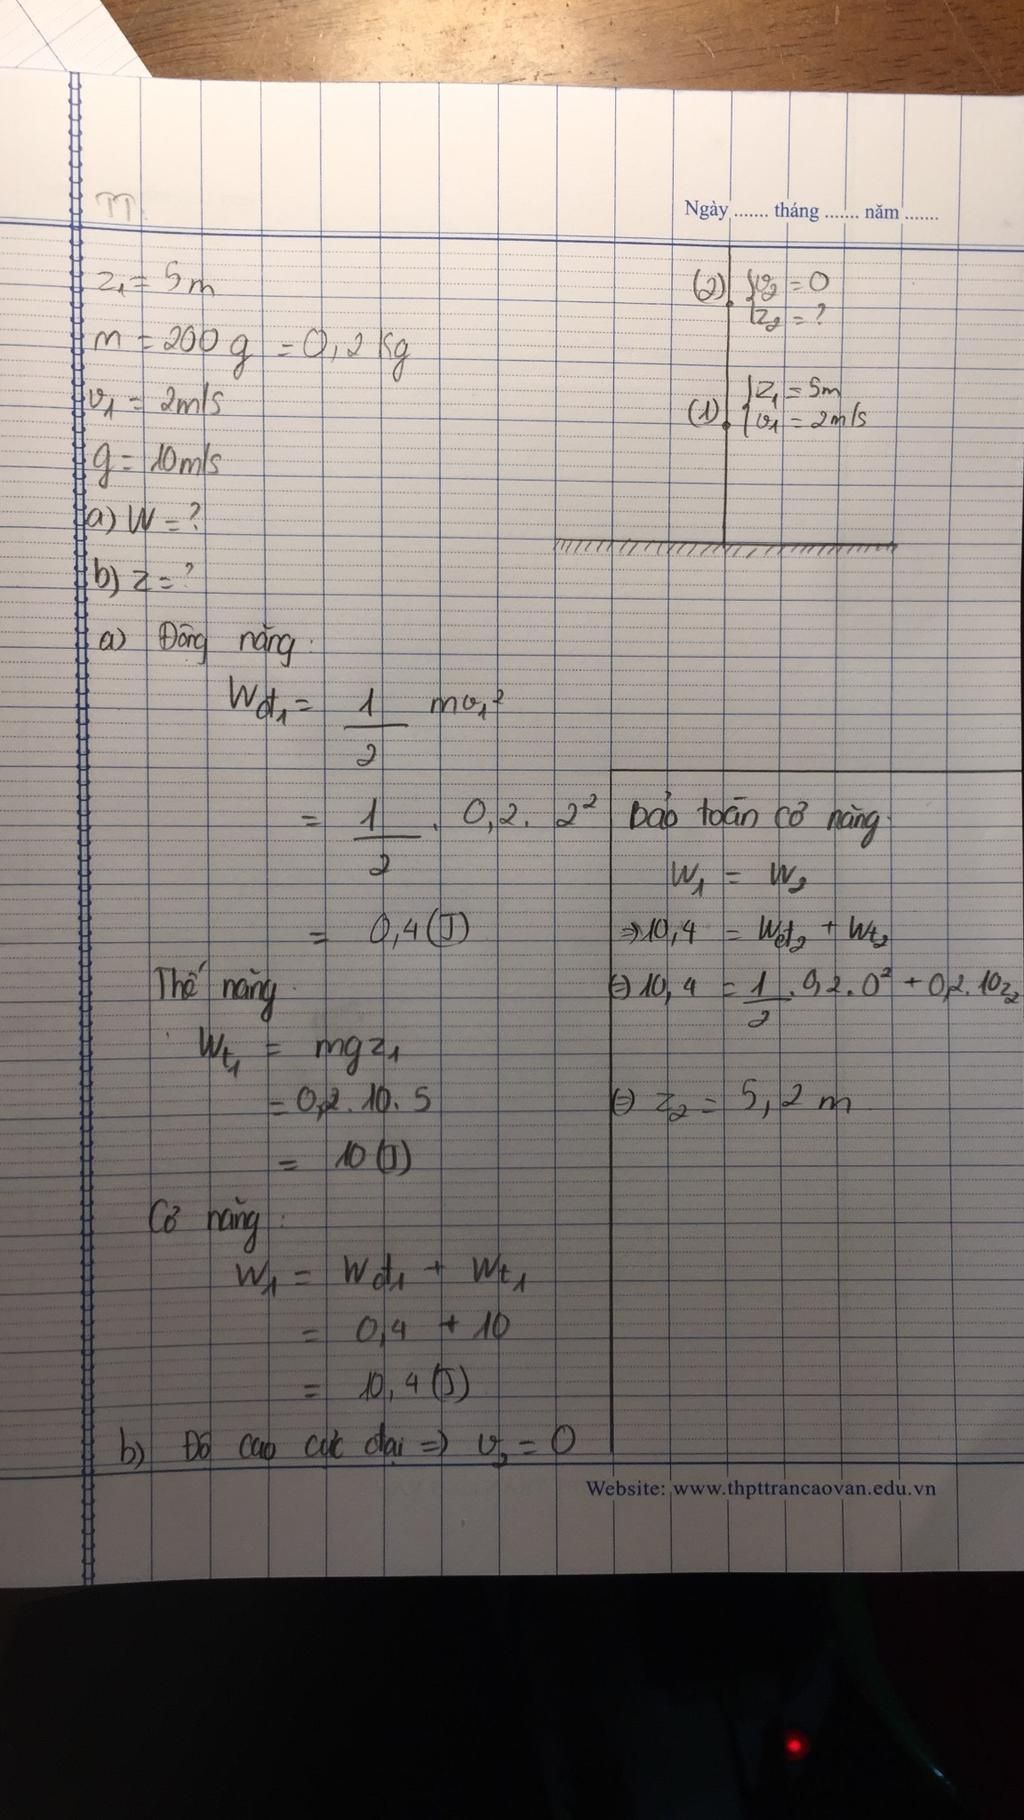 TT:
Ngày ....... tháng ....... năm .......
z₁ = 5m
m = 200g = 0,2 Kg
v₁ = 2m/s
g = 10m/s
a) W = ?
b) z = ?
(2) { v₂ = 0
z₂ = ?
(1) { z₁ = 5m
v₁ = 2m/s
a) Động năng:
Wđ₁ = 1/2 mv₁²
= 1/2 . 0,2 . 2²
= 0,4 (J)
Thế năng.
Wt₁ = mgz₁
= 0,2.10.5
= 10 (J)
Cơ năng:
W₁ = Wđ₁ + Wt₁
= 0,4 + 10
= 10,4 (J)
b) Độ cao cực đại => v₂ = 0
Bảo toàn cơ năng.
W₁ = W₂
=> 10,4 = Wđ₂ + Wt₂
(=) 10,4 = 1/2 . 0,2 . 0² + 0,2 . 10z₂
(=) z₂ = 5,2 m
Website: www.thpttrancaovan.edu.vn